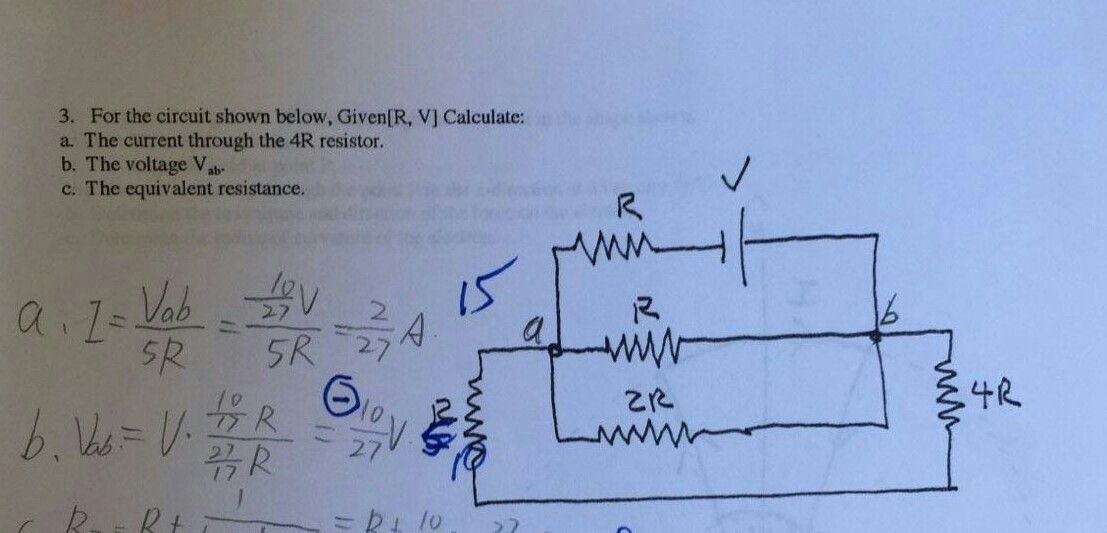 3. For the circuit shown below, Given[R, V] Calculate:
a. The current through the 4R resistor.
b. The voltage Vab.
c. The equivalent resistance.
V
R
a. I = Vab/5R = (10/27 V)/5R = 2/27 A.
15
R
a
b
2R
4R
R
b. Vab = V · (10/17 R)/(27/17 R) = ⊖ 10/27 V.
10
= R + 10